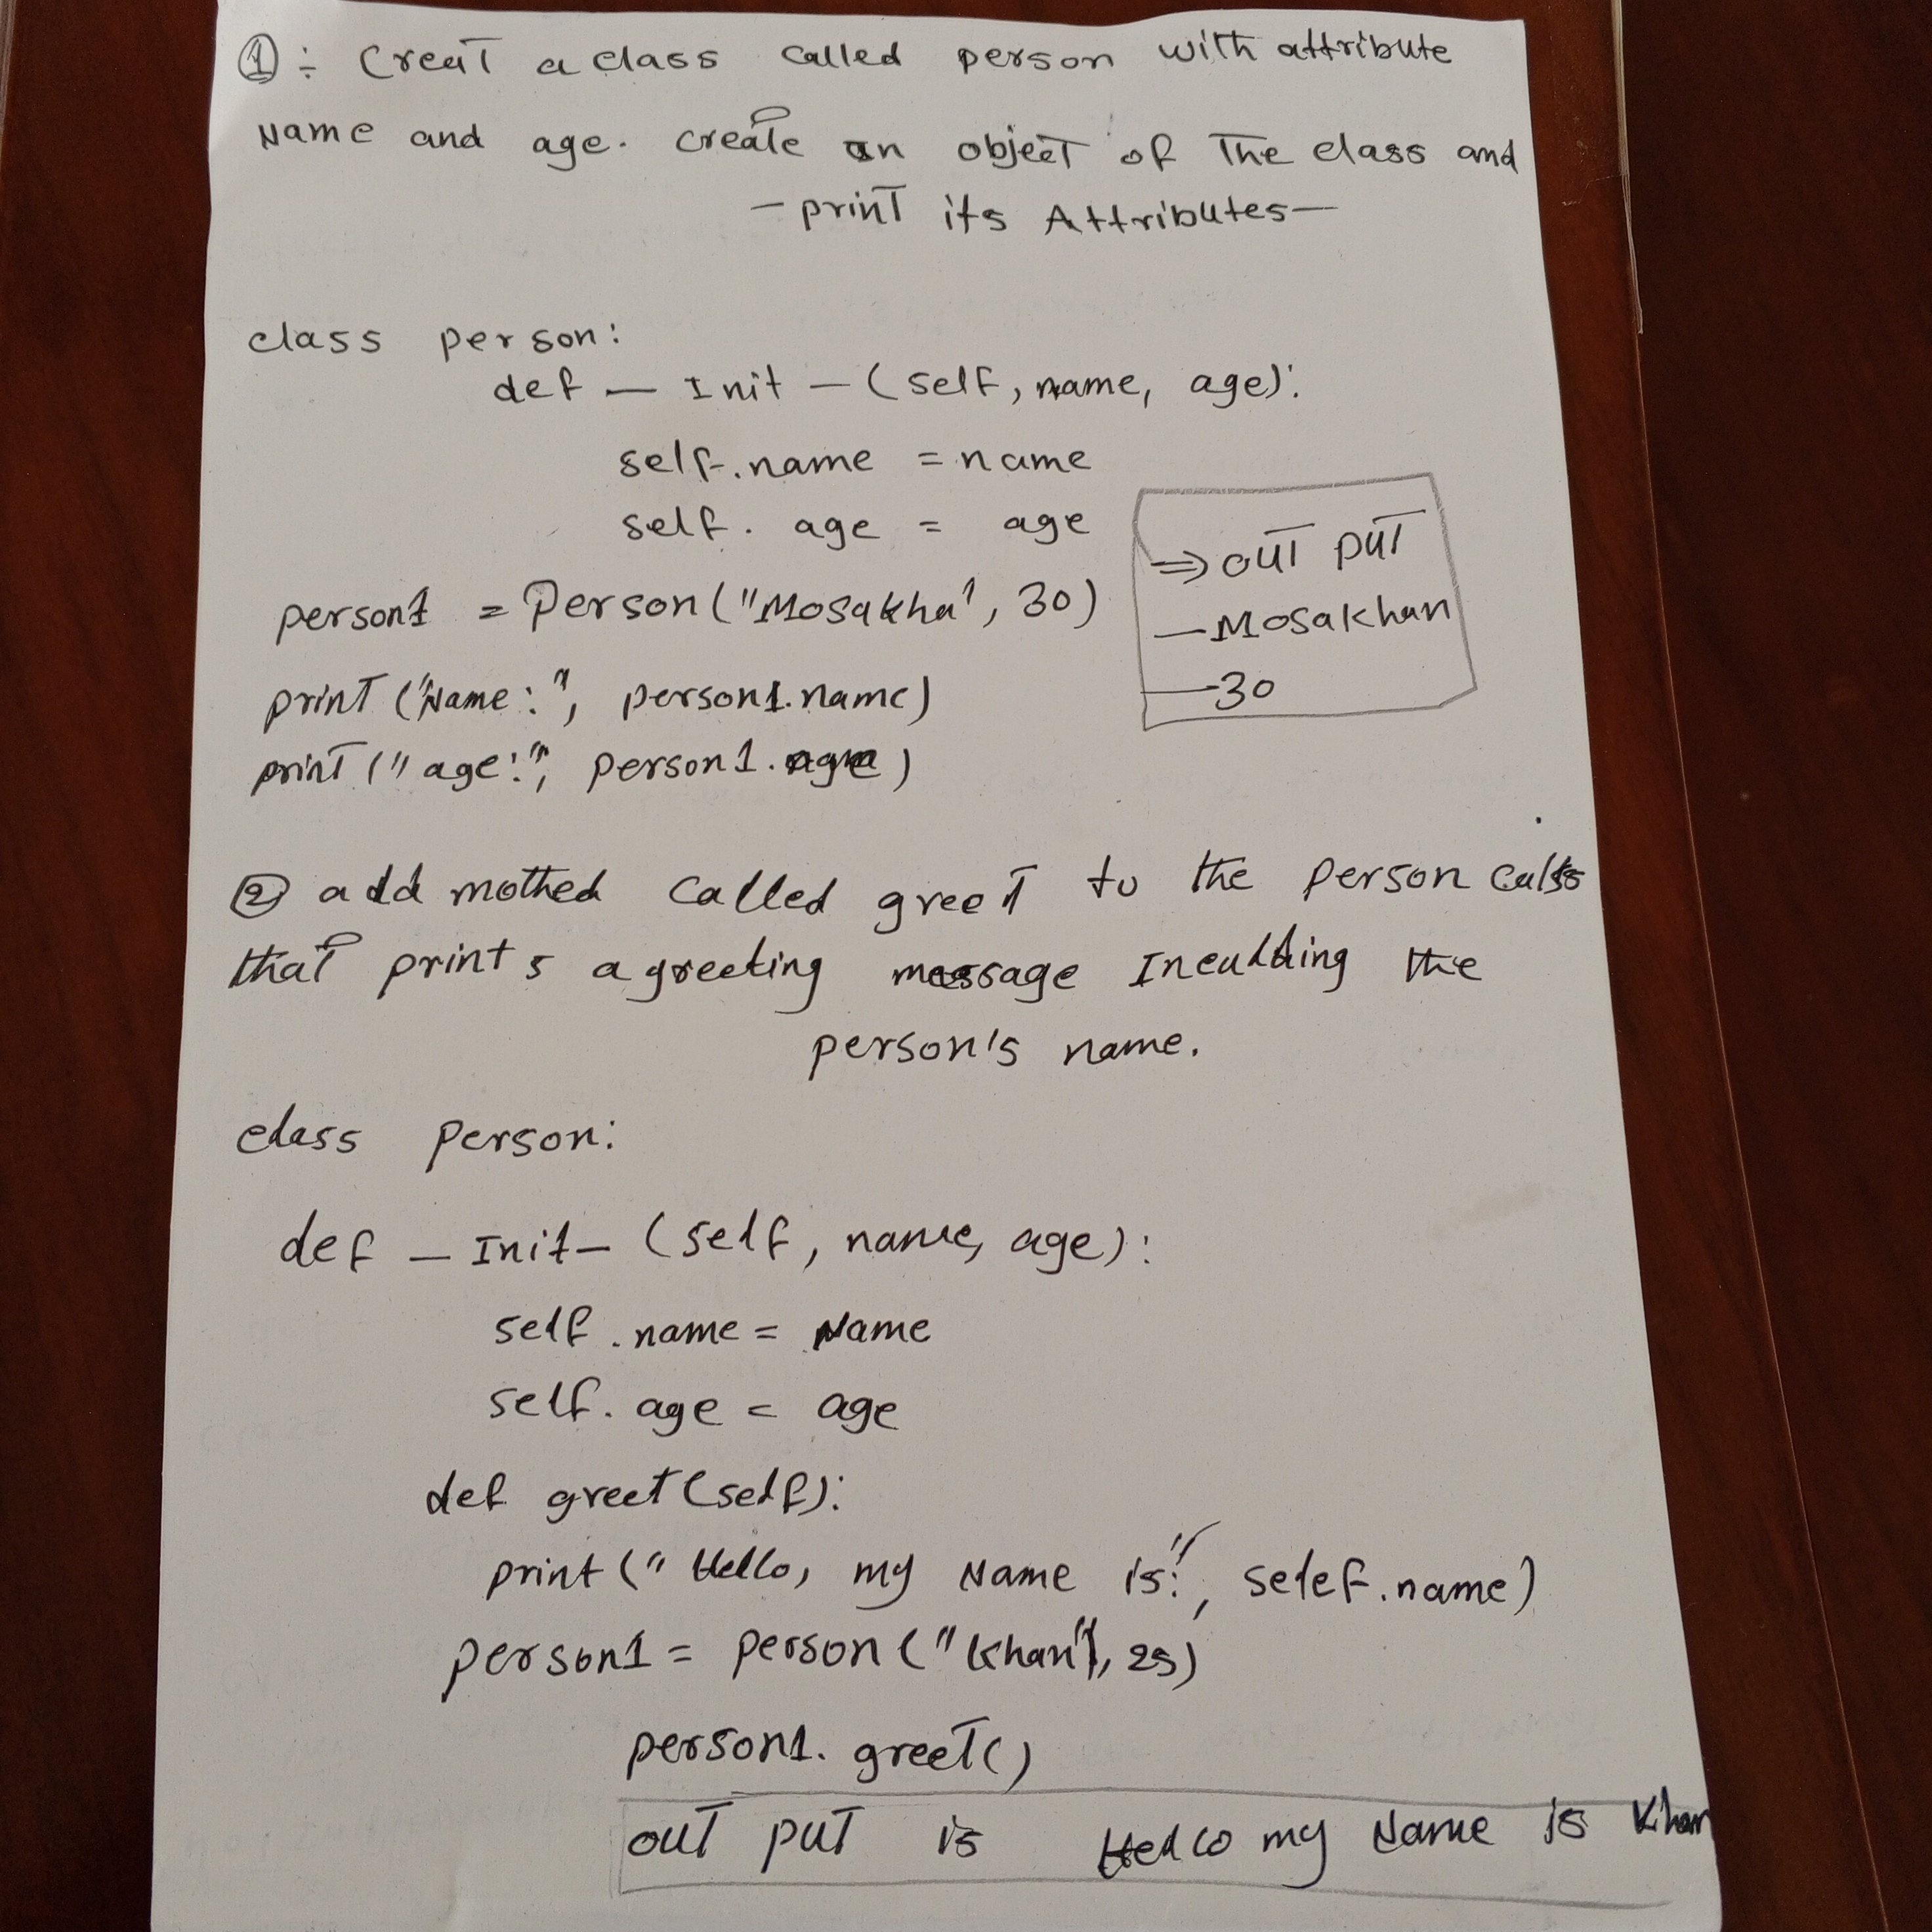 ① ÷ Creat a class called person with attribute
Name and age. create an object of The class and
- print its Attributes -
class person:
def _ Init _ (self, name, age):
self.name = name
self. age = age
person1 = Person("Mosakha", 30)
print ("Name:", person1.name)
print (" age:", person1.age)
⇒ out put
- Mosakhan
- 30
② add mothed called greet to the person
that prints a greeting message the
person's name.
class person:
def _ Init _ (self, name, age):
self.name = Name
self. age = age
def greet(self):
print (" Hello, my Name is:", selef.name)
person1 = person (" Khan", 25)
person1. greet()
out put is Hello my Name is Khan